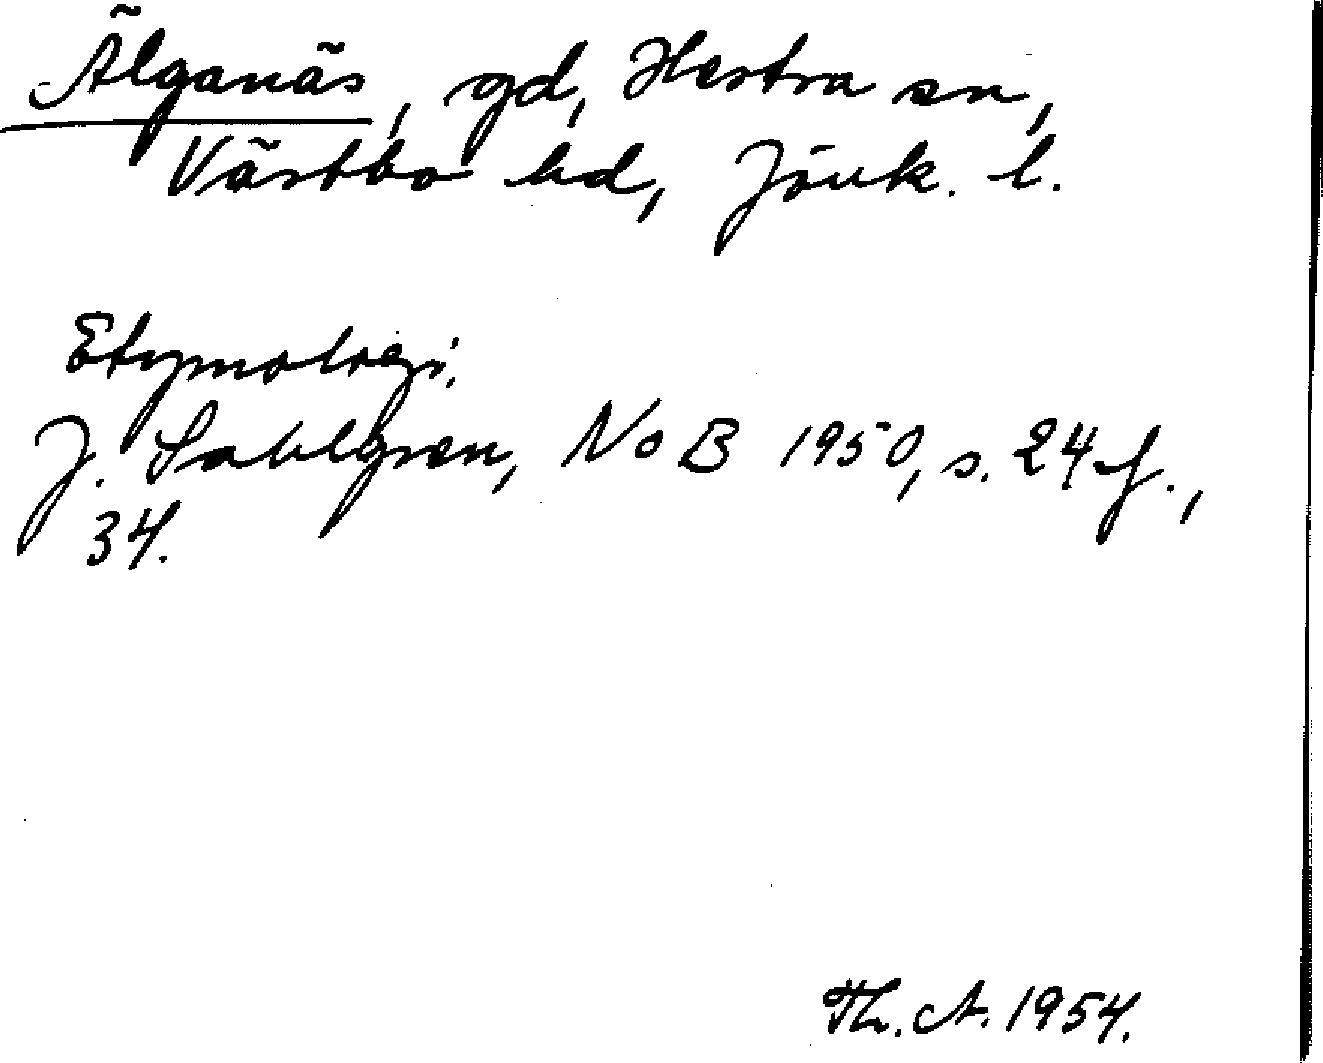 Älganäs, gd, Hestra sn,
Västbo hd, Jönk. l.
Etymologi.
J. Sahlgren, NoB 1950, s. 24 f.,
34.
Th. A. 1954.